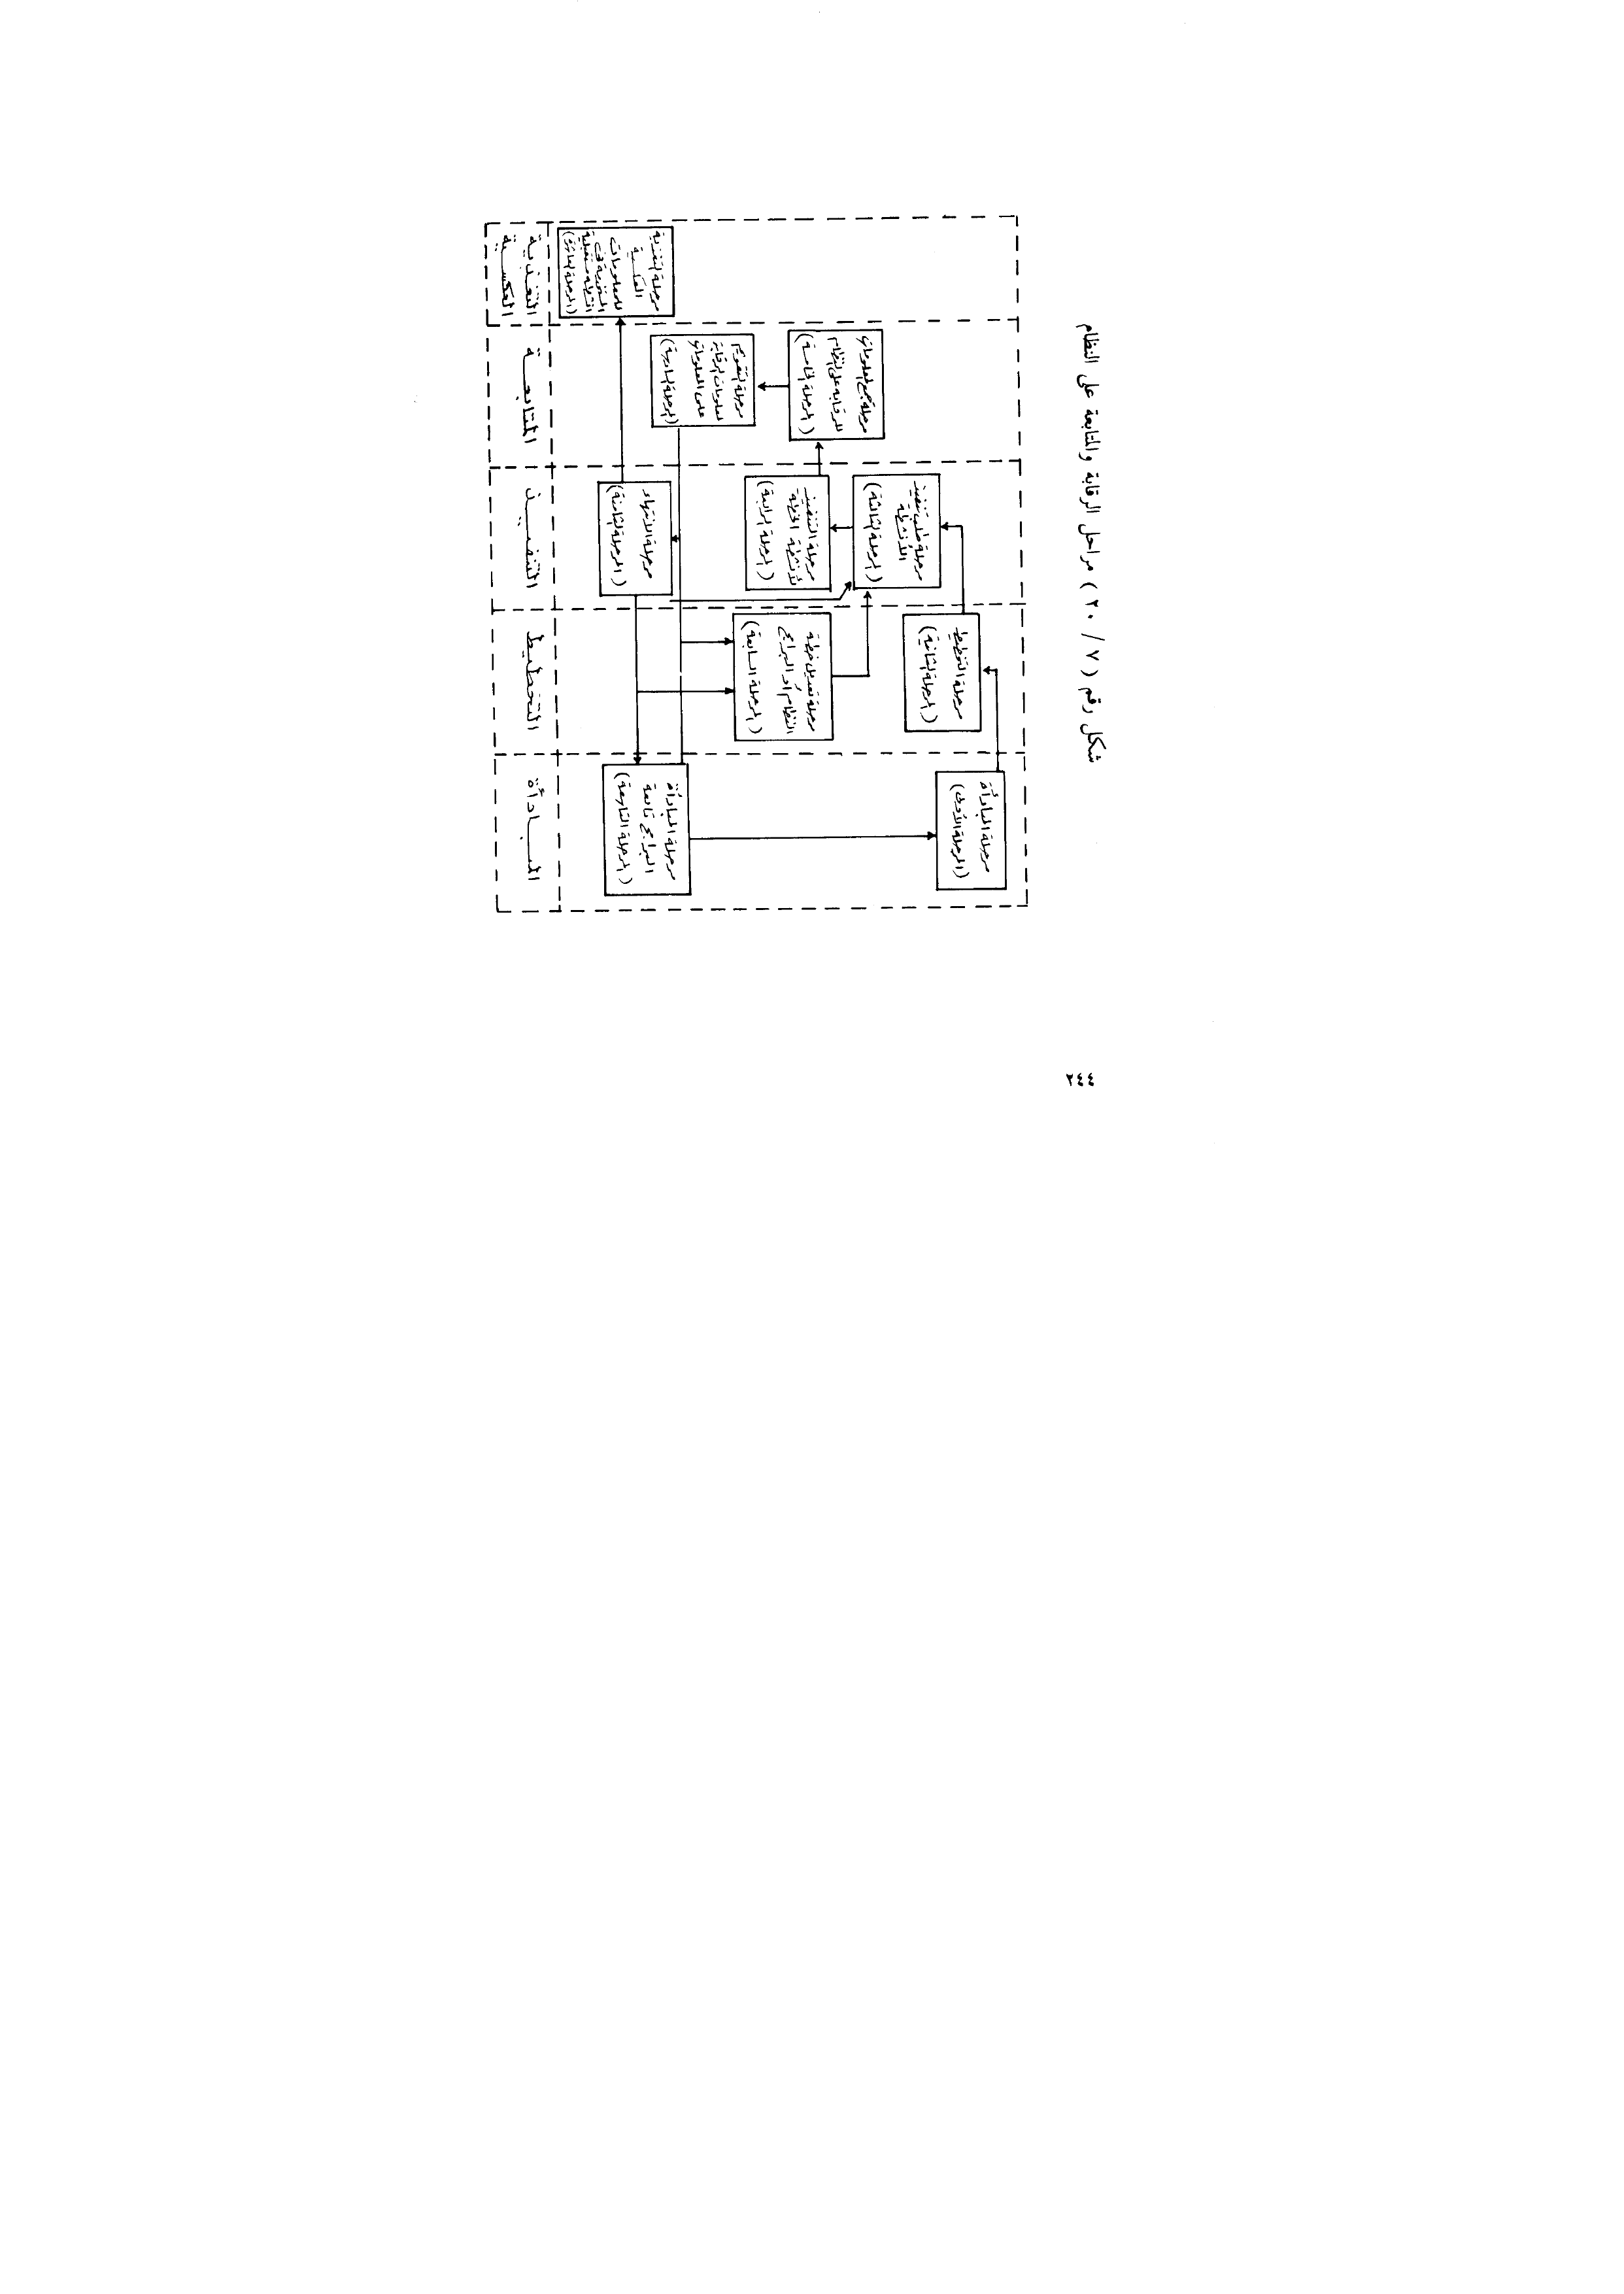 شكل رقم ( ٧ / ٢٠ ) مراحل الرقابة والمتابعة على النظام
مرحلة المبادأة
(المرحلة الأولى)
مرحلة التخطيط
(المرحلة الثانية)
مرحلة طلب تنفيذ
الأنشطة
(المرحلة الثالثة)
مرحلة التنفيذ
للأنشطة
(المرحلة الرابعة)
مرحلة جمع المعلومات
للرقابة على النظام
(المرحلة الخامسة)
مرحلة التقويم
لمعلومات الرقابة
على المعلومات
(المرحلة السادسة)
مرحلة تعديل خطة
النظام أو البرامج
(المرحلة السابعة)
مرحلة الانتهاء
(المرحلة الثامنة)
مرحلة المبادأة
البرامج تابعة
(المرحلة التاسعة)
مرحلة التغذية
العكسية
للمعلومات
أنشطة مستقبلية
(المرحلة العاشرة)
المبادأة
التخطيط
التنفيذ
المتابعة
التغذية
العكسية
٢٤٤